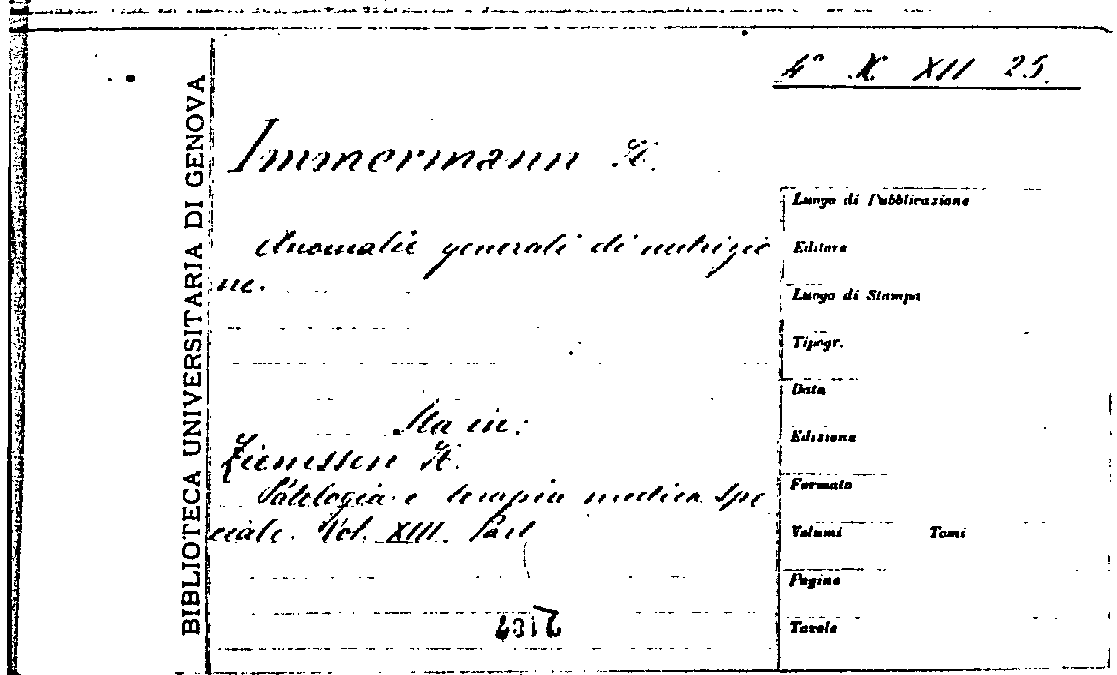 4° K XII 25.
BIBLIOTECA UNIVERSITARIA DI GENOVA
Immermann H.
Anomalie generali di nutrizio
ne.
Sta in:
Ziemssen H.
Patologia e terapia medica spe
ciale. Vol. XIII. Part
Luogo di Pubblicazione
Editore
Luogo di Stampa
Tipogr.
Data
Edizione
Formato
Volumi Tomi
Pagine
Tavole